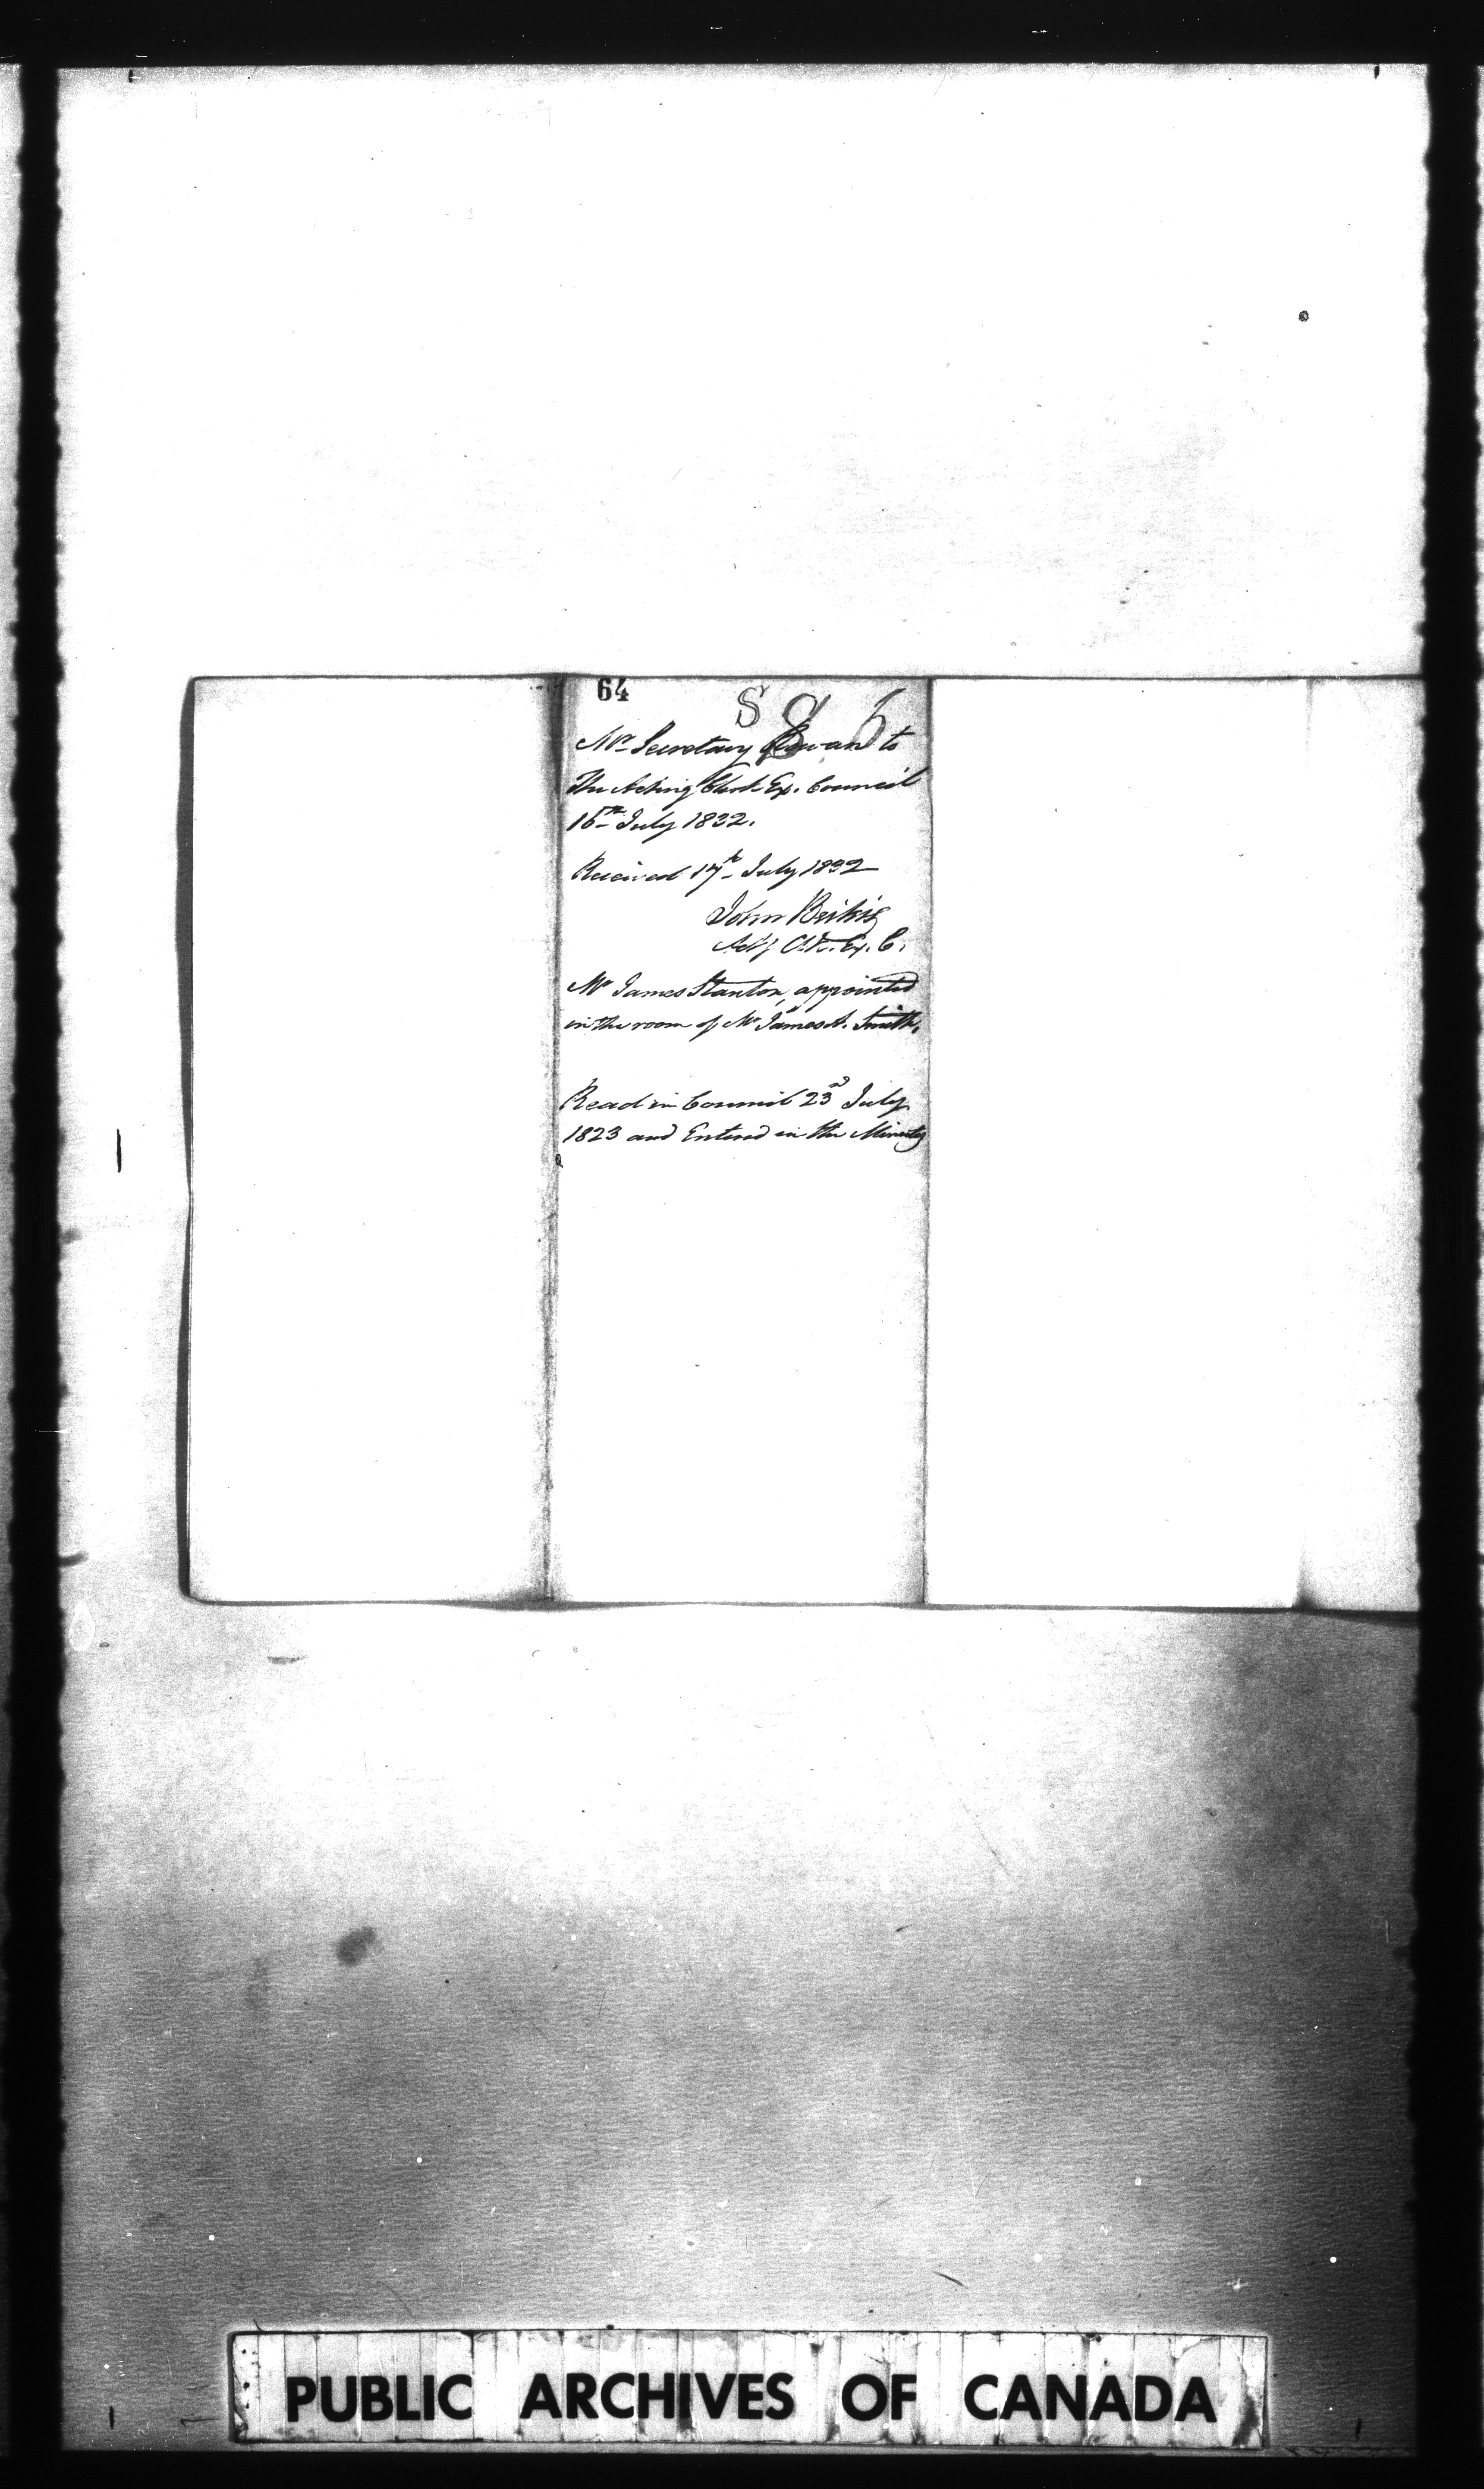 64
S 8 6
Mr. Secretary Rowan to
The Acting Clerk Ex. Council
16th July 1832.
Received 17th July 1832
John Beikie
Actg Clk. Ex. C.
Mr James Stanton, appointed
in the room of Mr James A. Smith.
Read in Council 23rd July
1823 and Entered in the Minutes
PUBLIC ARCHIVES OF CANADA